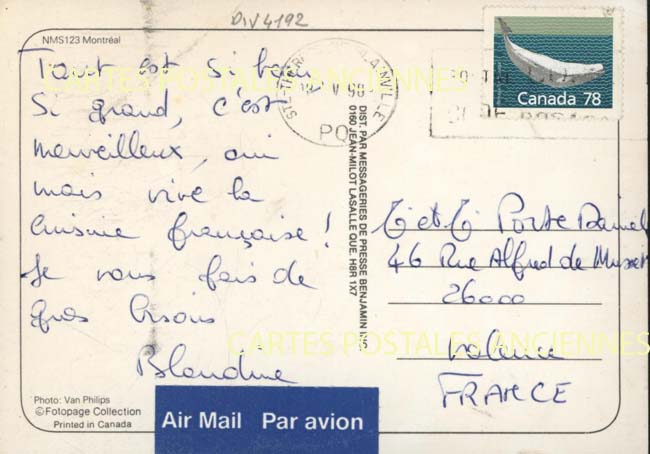 DIV4192
NMS123 Montréal
Tout est si beau
si grand, c'est
merveilleux, oui
mais vive la
cuisine française !
Je vous fais de
gros bisous
Blandine
CARTES POSTALES ANCIENNES
CARTES POSTALES ANCIENNES
PQ
Canada 78
DIST. PAR MESSAGERIES DE PRESSE BENJAMIN
0160 JEAN-MILOT LASALLE QUE. H8R 1X7
et Porte Daniel
46 Rue Alfred de Musset
26000
Valence
FRANCE
Photo: Van Philips
©Fotopage Collection
Printed in Canada
Air Mail Par avion